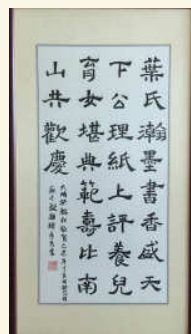 葉氏瀚墨書香盛天
下公理紙上評養兒
育女堪典範壽比南
山共歡慶